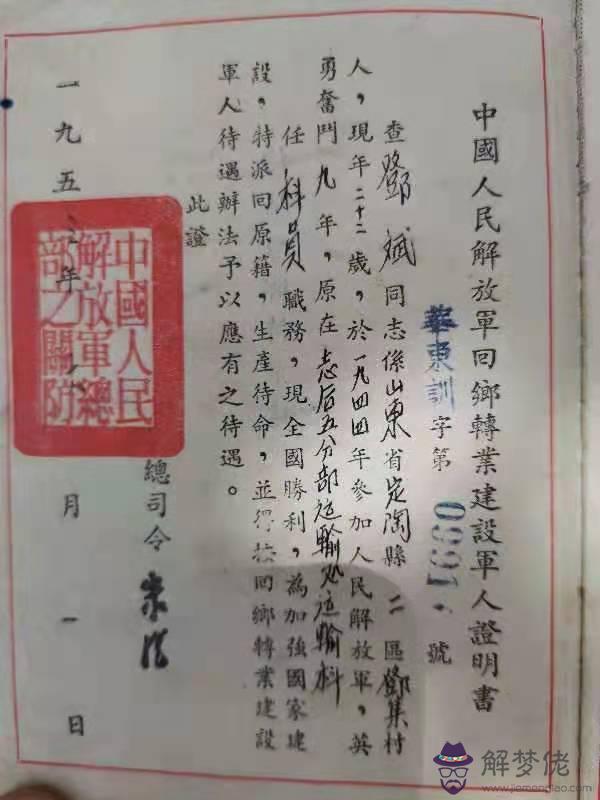 中國人民解放軍回鄉轉業建設軍人證明書
華東訓字第 號
查鄧斌同志係山東省定陶縣二區鄧集村
人，現年二十二歲，於一九四四年參加人民解放軍，英
勇奮鬥九年，原在志后五分部运輸处运輸科
任科員職務，現全國勝利，為加強國家建
設，特派回原籍，生產待命，並得按回鄉轉業建設
軍人待遇辦法予以應有之待遇。
此證
總司令 朱德
一九五 年 月一日
中國人民
解放軍總
部之關防
解梦佬
www.jiemenglao.com